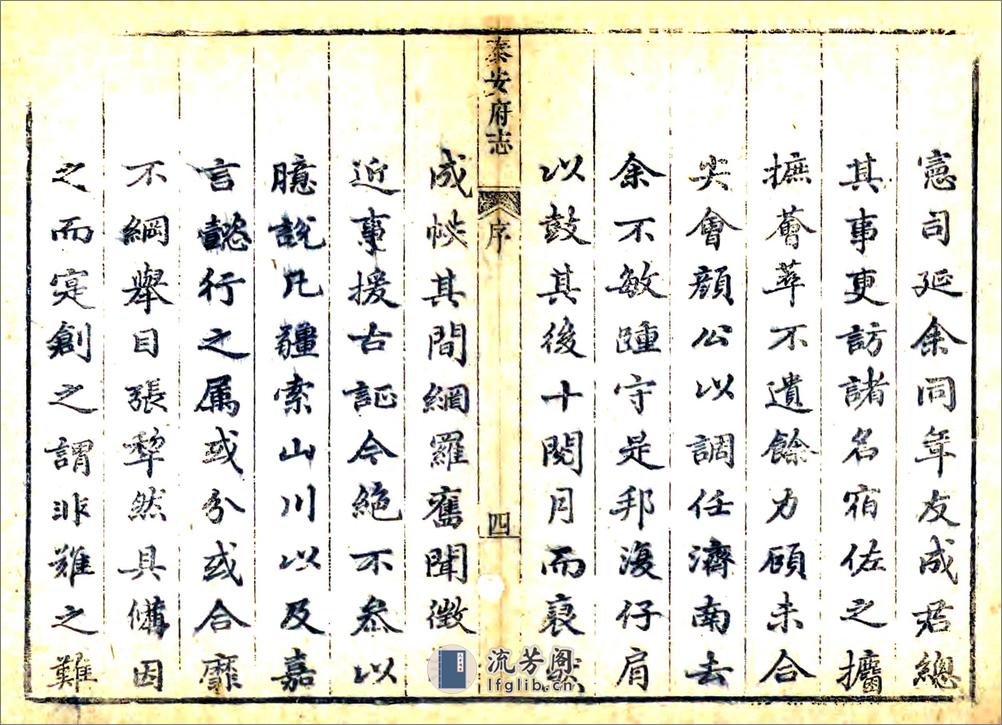 憲司延余同年友成君總
其事更訪諸名宿佐之攟
摭薈萃不遺餘力頋未合
尖會顔公以調任濟南去
余不敏踵守是邦復仔肩
以鼓其後十閱月而裒然
泰安府志
序
四
成帙其間網羅舊聞徵
近事援古証今絕不叅以
臆說凡疆索山川以及嘉
言懿行之属或分或合靡
不綱舉目張犂然具備因
之而寔創之謂非難之難
流芳阁
lfglib.cn